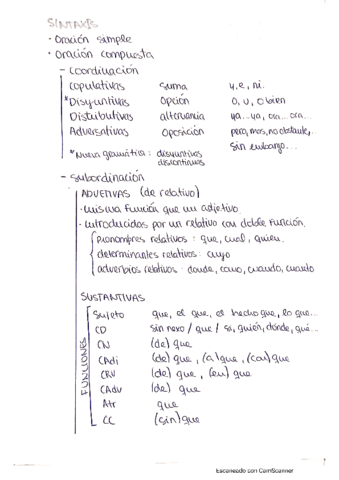 SINTAXIS
· Oración simple
· Oración compuesta
- Coordinación
Copulativas suma y, e, ni.
*Disyuntivas opción o, u, o bien
Distributivas alternancia ya...ya, ora...ora...
Adversativas oposición pero, mas, no obstante,
sin embargo...
*Nueva gramática: disyuntivas
discontinuas
- Subordinación
ADJETIVAS (de relativo)
· Misma función que un adjetivo.
· Introducidas por un relativo con doble función.
pronombres relativos: que, cual, quien.
determinantes relativos: cuyo
adverbios relativos: donde, como, cuando, cuanto
SUSTANTIVAS
FUNCIONES
Sujeto que, el que, el hecho que, lo que...
CD sin nexo / que / si, quién, dónde, qué...
CN (de) que
CAdj (de) que, (a) que, (con) que
CRV (de) que, (en) que
CAdv (de) que
Atr que
CC (sin) que
Escaneado con CamScanner